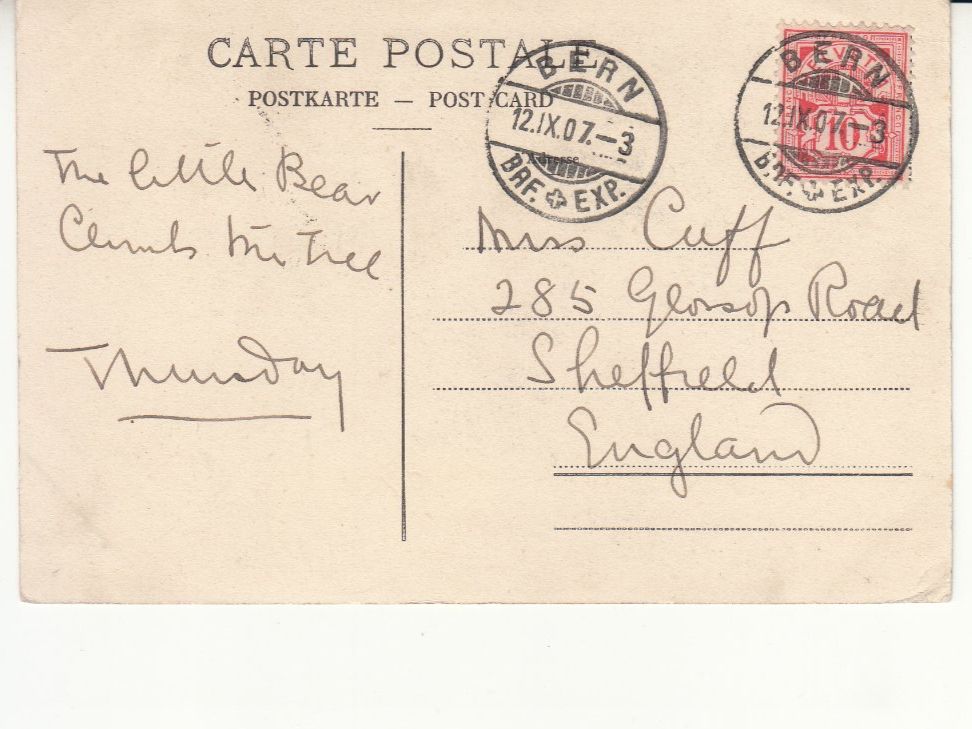 CARTE POSTALE
POSTKARTE — POST CARD
BERN
12.IX.07.–3
BRF. EXP.
BERN
12.IX.07–3
BRF. EXP.
10
Adresse
The little Bear
Climbs the tree
Thursday
Miss Cuff
285 Glossop Road
Sheffield
England